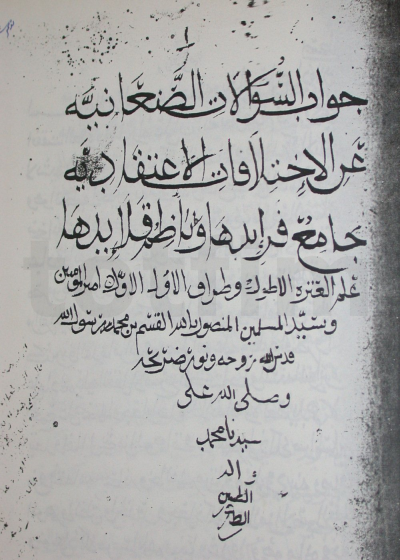 جواب السؤالات الصنعانيه
عن الاختلافات الاعتقاديه
جامع فرايدها وناظم قلايدها
علم العتره الاطول وطراز الاول امير المومنين
وسيد المسلمين المنصور بالله القسم بن محمد بن رسول الله
قدس الله روحه ونور ضريحه
وصلى الله على
سيدنا محمد
واله
الطيبين
الطاهرين